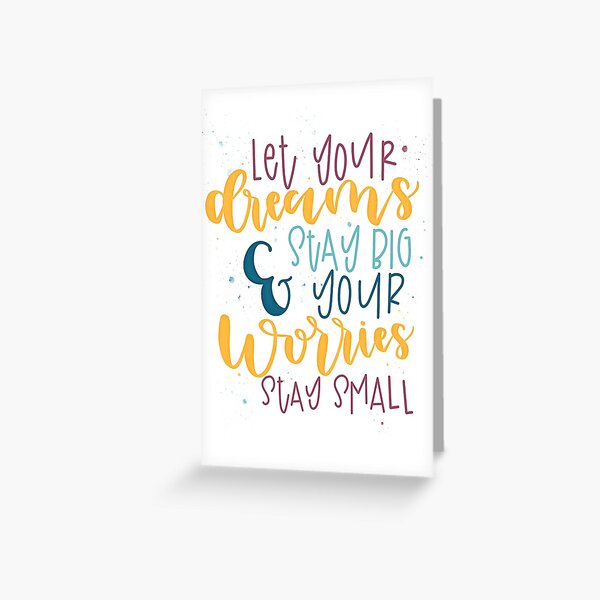 Let YOUR
dreams
StAY BIG
& YOUR
Worries
StAY SMALL